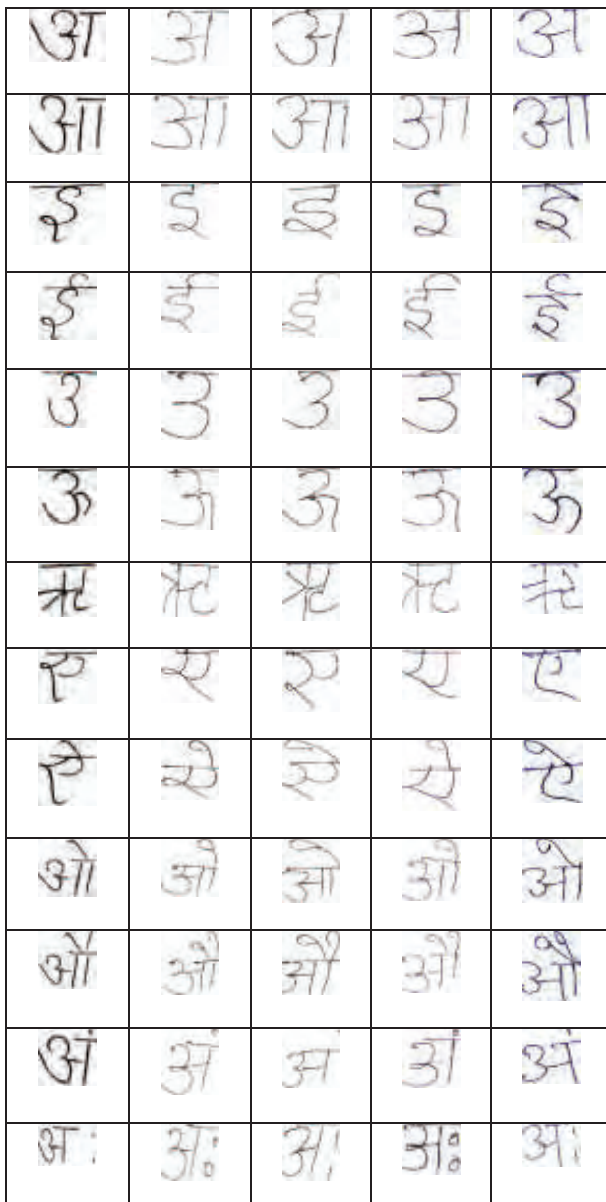 अ अ अ अ अ
आ आ आ आ आ
इ इ इ इ इ
ई ई ई ई ई
उ उ उ उ उ
ऊ ऊ ऊ ऊ ऊ
ऋ ऋ ऋ ऋ ऋ
ए ए ए ए ए
ऐ ऐ ऐ ऐ ऐ
ओ ओ ओ ओ ओ
औ औ औ औ औ
अं अं अं अं अं
अः अः अः अः अः